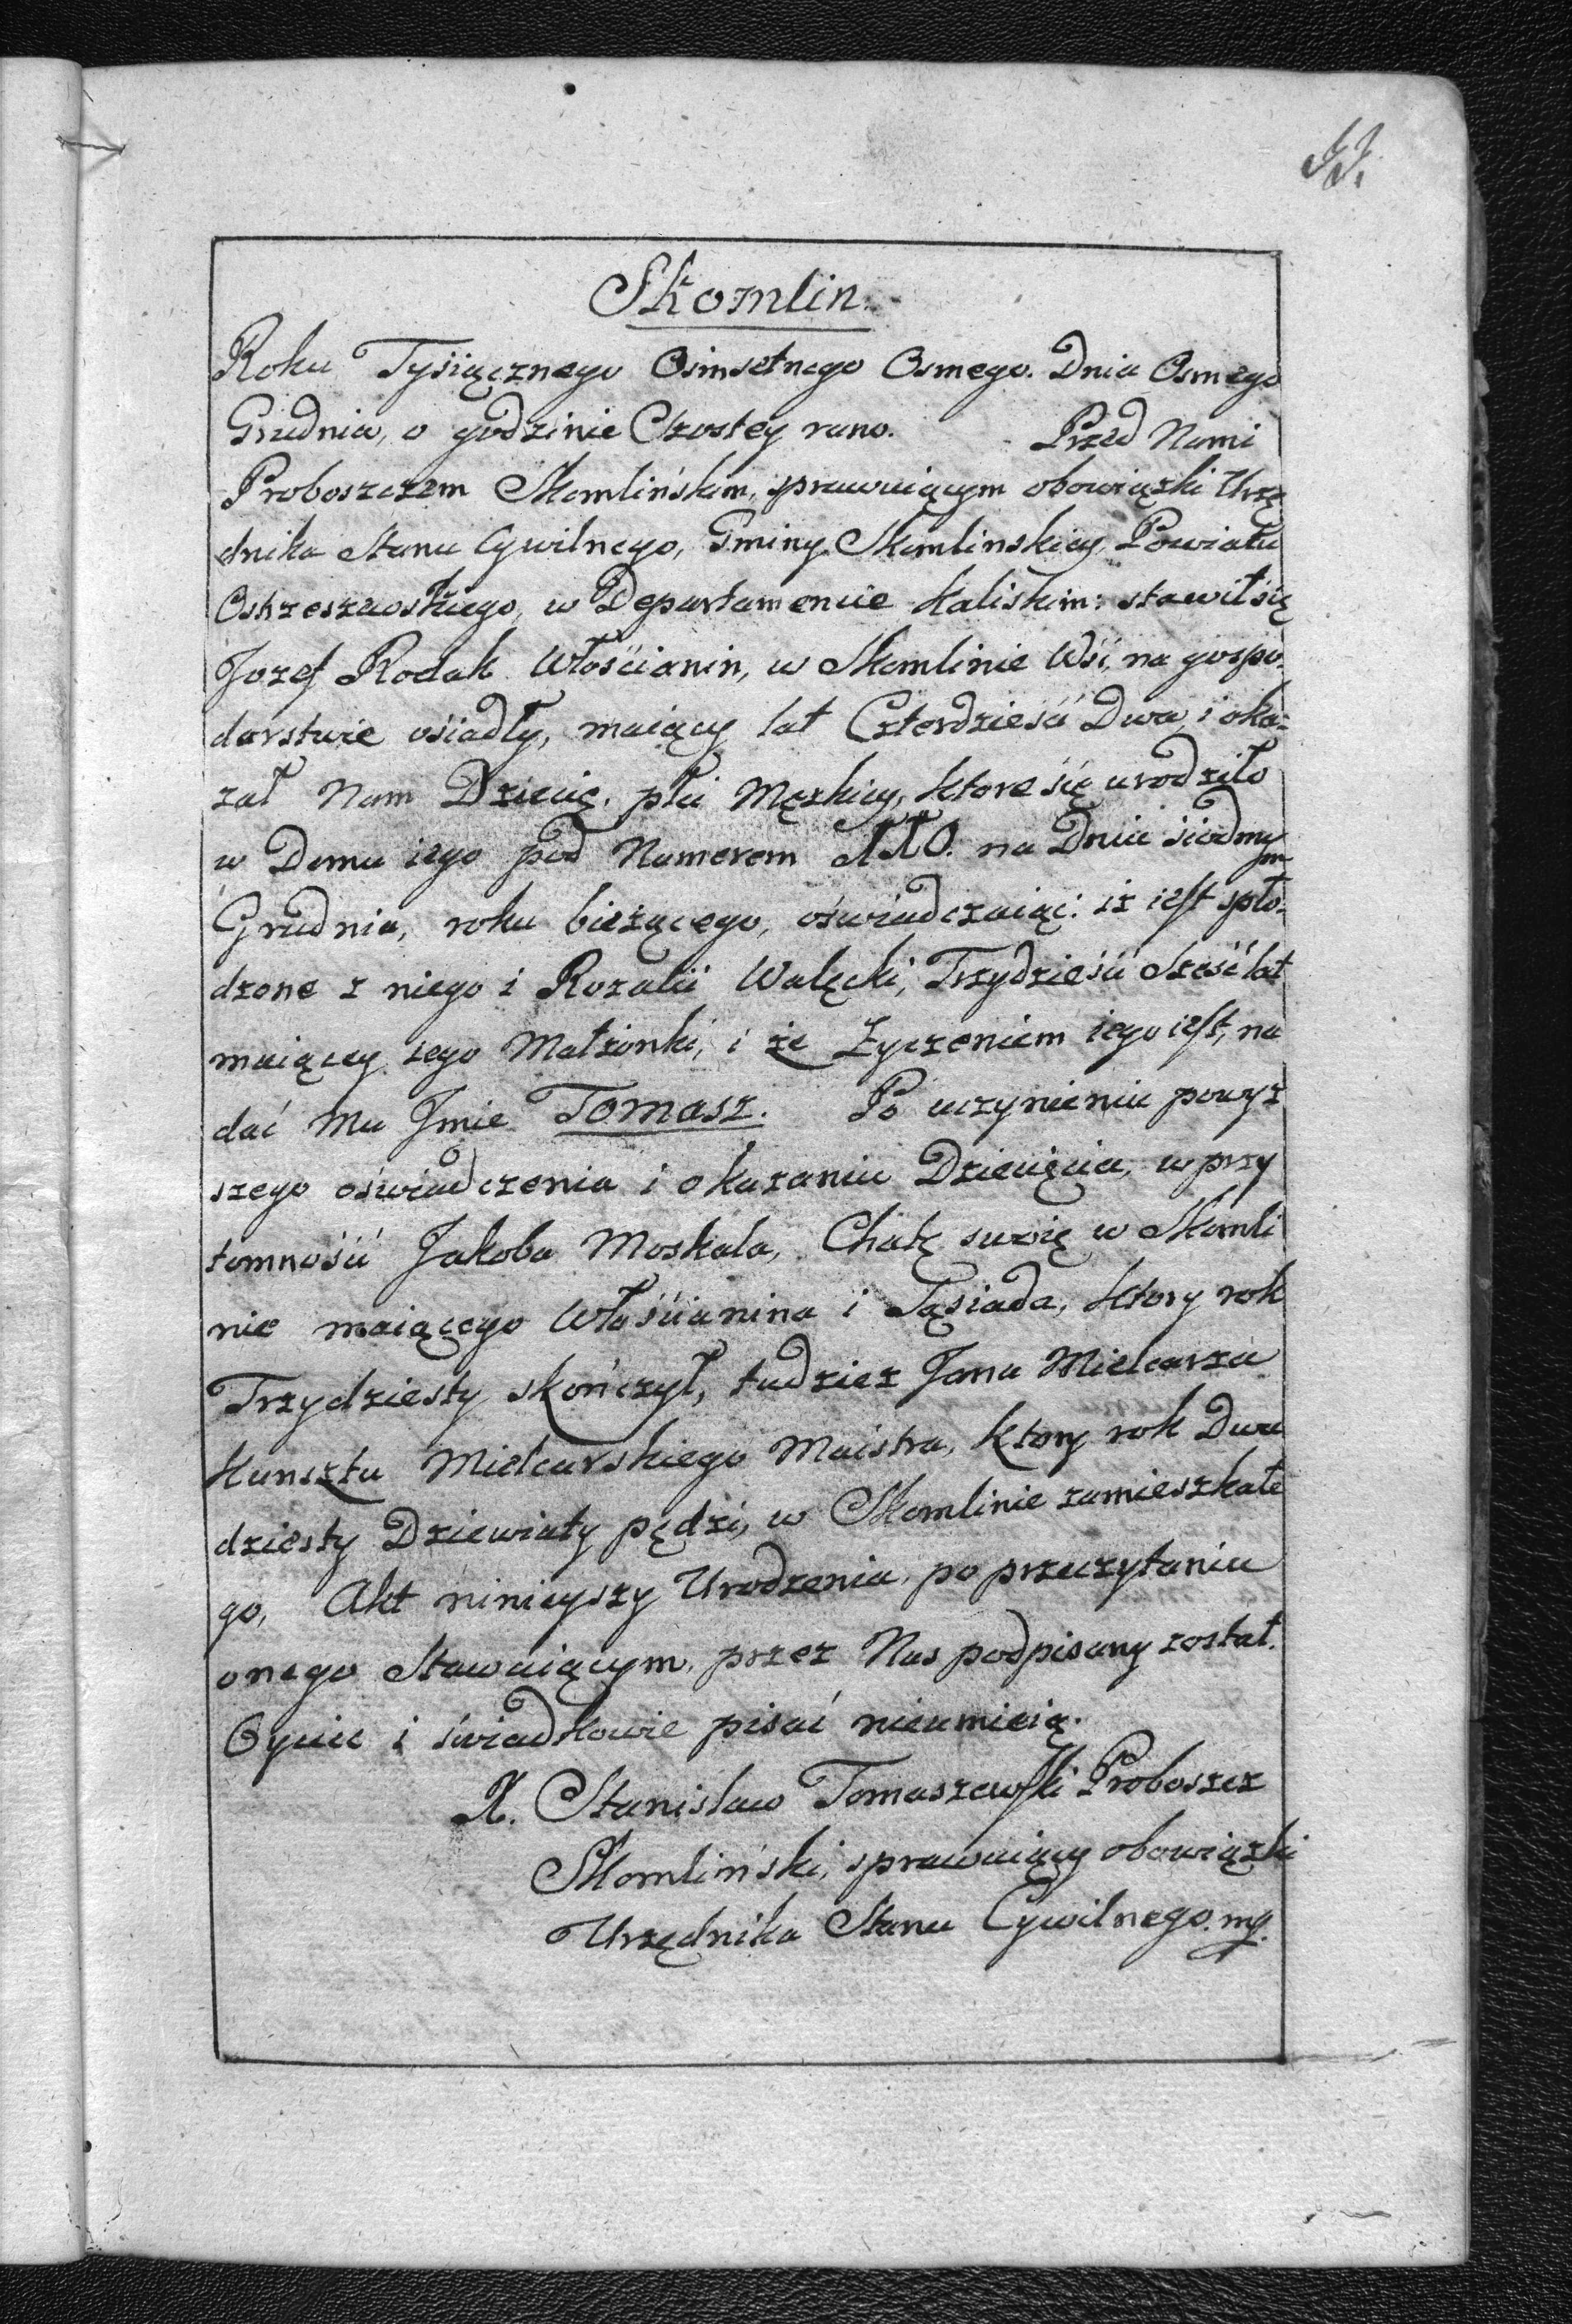 Skomlin.
Roku Tysiącznego Osimsetnego Osmego. Dnia Osmego
Grudnia, o godzinie Szostey rano. Przed Nami
Proboszczem Skomlińskim, sprawuiącym obowiązki Urzę
dnika Stanu Cywilnego, Gminy Skomlinskiey, Powiatu
Ostrzeszowskiego, w Departamencie Kaliskim: stawił się
Jozef Rodak Włościanin, w Skomlinie Wsi, na gospo-
darstwie osiadły, maiący lat Czterdzieści Dwa, i oka-
zał Nam Dziecię, płci Męzkiey, ktore się urodziło
w Domu iego pod Numerem 110. na Dniu siodmym
Grudnia, roku bieżącego, oświadczaiąc: iż iest spło-
dzone z niego i Rozalii Walęcki, Trzydzieści Sześć lat
maiącey iego Małżonki, i że Życzeniem iego iest, na
dać Mu Jmie Tomasz. Po uczynieniu powyż
szego oświadczenia i okazaniu Dziecięcia, w przy
tomności Jakoba Moskala, Chatę swoię w Skomli
nie maiącego Włościanina i Sąsiada, ktory rok
Trzydziesty skończył, tudziez Jana Mielcarza
Kunsztu Mielcarskiego Maistra, ktory rok Dwu
dziesty Dziewiąty pędzi, w Skomlinie zamieszkałe
go, Akt ninieyszy Urodzenia, po przeczytaniu
onego Stawaiącym, przez Nas podpisany został.
Oyciec i świadkowie pisać nieumieią.
X. Stanisław Tomaszewski Proboszcz
Skomliński, sprawuiący obowiązki
Urzędnika Stanu Cywilnego. mp.